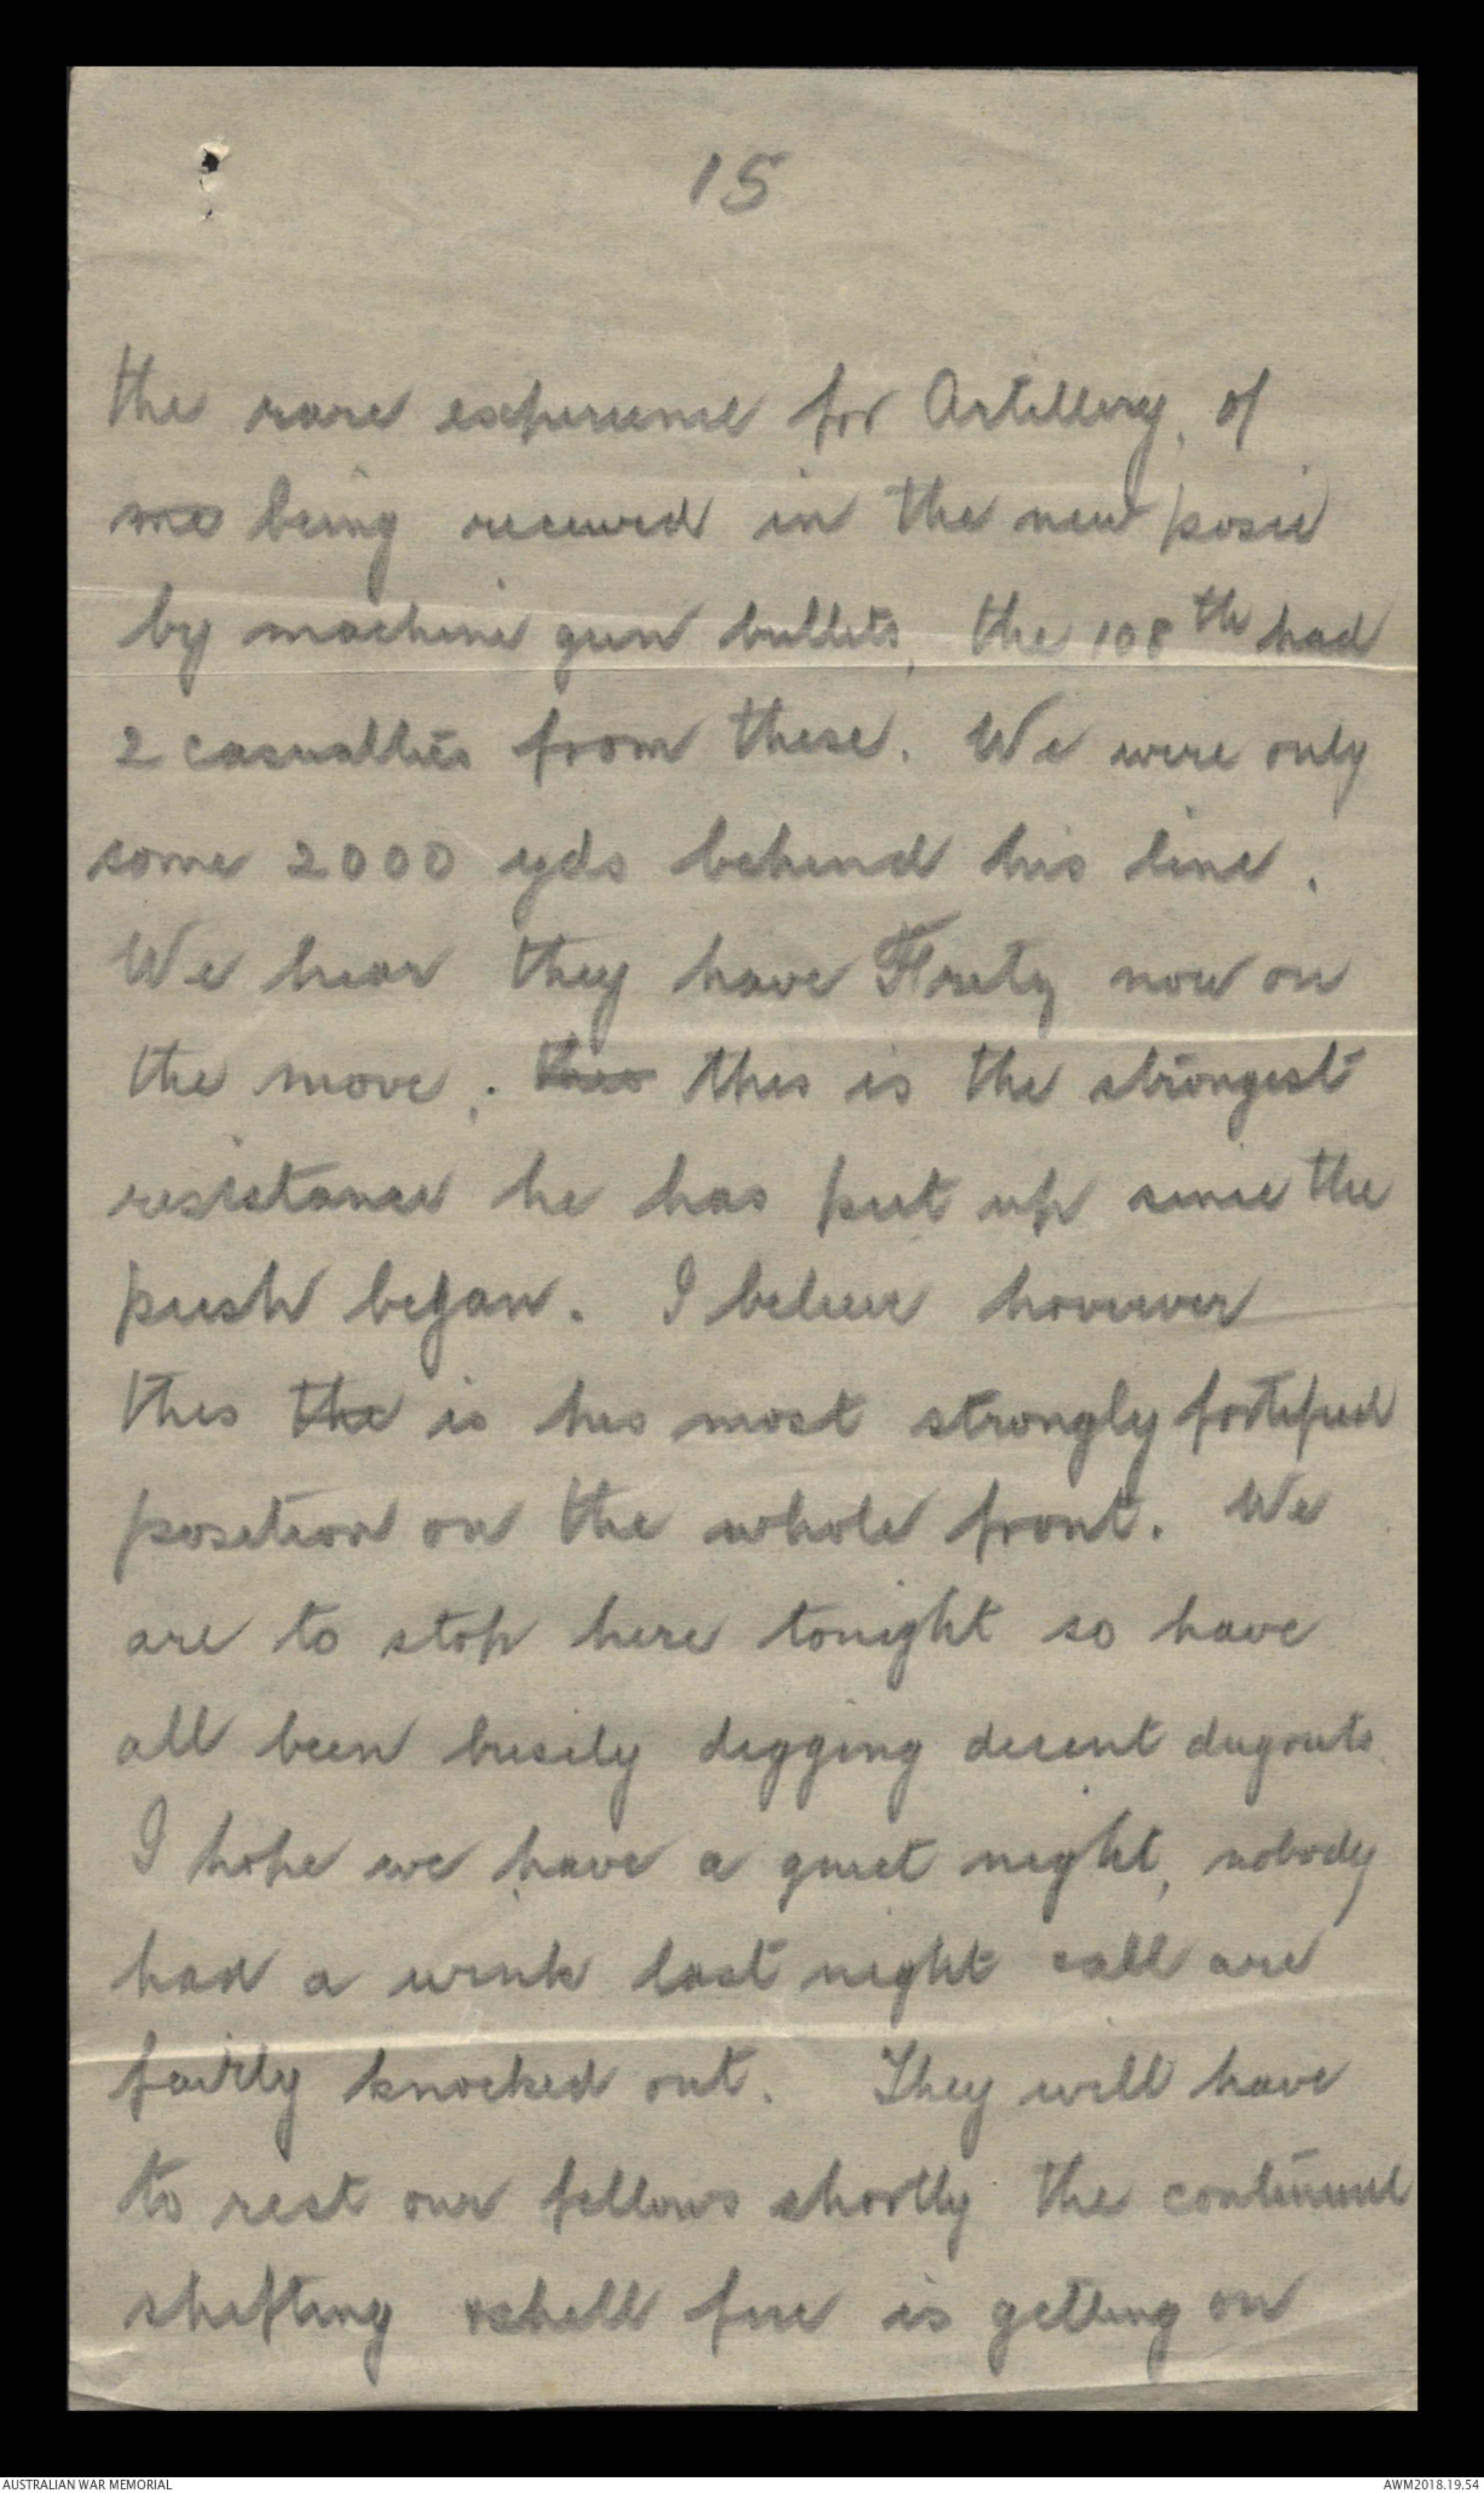 15
the rare experience for Artillery, of
me being received in the new posie
by machine gun bullets, the 108th had
2 casualties from these. We were only
some 2000 yds behind his line.
We hear they have Fritz now on
the move. this this is the strongest
resistance he has put up since the
push began. I believe however
this the is his most strongly fortified
position on the whole front. We
are to stop here tonight so have
all been busily digging decent dugouts.
I hope we have a quiet night, nobody
had a wink last night & all are
fairly knocked out. They will have
to rest our fellows shortly the continual
shifting & shell fire is getting on
AUSTRALIAN WAR MEMORIAL
AWM2018.19.54